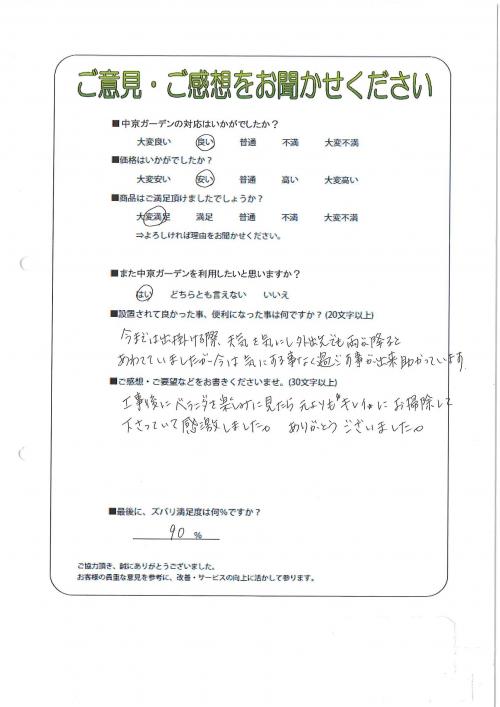 ご意見・ご感想をお聞かせください
■中京ガーデンの対応はいかがでしたか？
大変良い 良い 普通 不満 大変不満
■価格はいかがでしたか？
大変安い 安い 普通 高い 大変高い
■商品はご満足頂けましたでしょうか？
大変満足 満足 普通 不満 大変不満
⇒よろしければ理由をお聞かせください。
■また中京ガーデンを利用したいと思いますか？
はい どちらとも言えない いいえ
■設置されて良かった事、便利になった事は何ですか？(20文字以上)
今までは出掛ける際、天気を気にし外出先でも雨が降ると
あわてていましたが今は気にする事なく過ごす事が出来助かっています。
■ご感想・ご要望などをお書きくださいませ。(30文字以上)
工事後にベランダを楽しみに見たら元よりも"キレイ"にお掃除して
下さっていて感激しました。 ありがとうございました。
■最後に、ズバリ満足度は何%ですか？
90 %
ご協力頂き、誠にありがとうございました。
お客様の貴重な意見を参考に、改善・サービスの向上に活かして参ります。